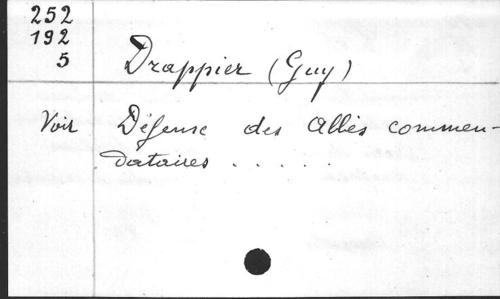 252
192
5
Drappier (Guy)
Voir Défense des Abbés commen-
dataires . . . . .